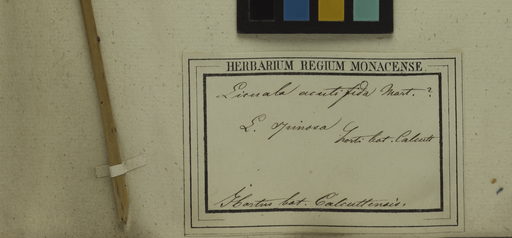 HERBARIUM REGIUM MONACENSE
Licuala acutifida Mart. ?
L. spinosa
horti bot. Calcutt
Hortus bot. Calcuttensis.